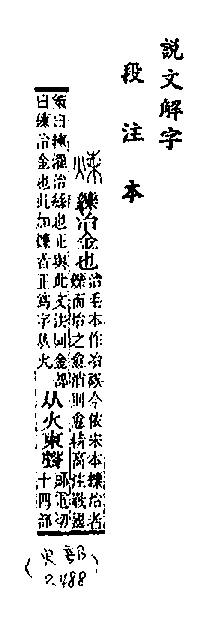 說文解字
段注本
煉 鑠治金也
治毛本作冶誤今依宋本鑠治者
鑠而治之愈消則愈精高注戰國
策曰練濯治絲也正與此文法同金部
曰鍊治金也此加鑠者正爲字从火
从火柬聲
郎電切
十四部
(火部 P.488)